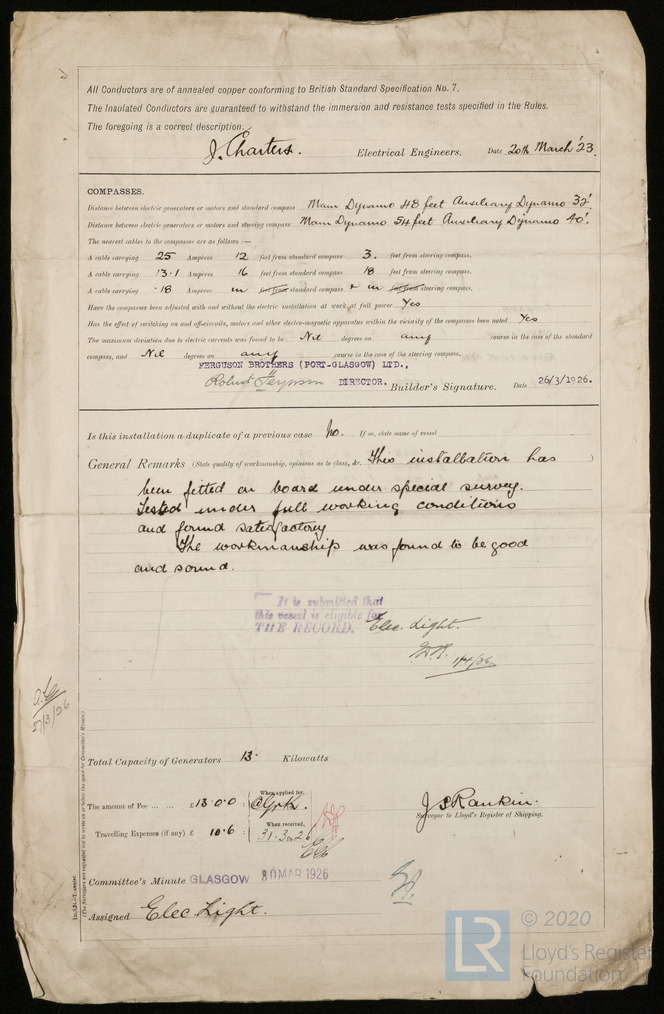 All Conductors are of annealed copper conforming to British Standard Specification No. 7.
The Insulated Conductors are guaranteed to withstand the immersion and resistance tests specified in the Rules.
The foregoing is a correct description.
J. Charters. Electrical Engineers. Date 20th March '23.
COMPASSES.
Distance between electric generators or motors and standard compass Main Dynamo 48 feet Auxiliary Dynamo 32'.
Distance between electric generators or motors and steering compass Main Dynamo 54 feet Auxiliary Dynamo 40'.
The nearest cables to the compasses are as follows :—
A cable carrying 25 Ampères 12 feet from standard compass 3. feet from steering compass.
A cable carrying 13.1 Ampères 16 feet from standard compass 18 feet from steering compass.
A cable carrying .18 Ampères in feet from standard compass + in feet from steering compass.
Have the compasses been adjusted with and without the electric installation at work at full power Yes
Has the effect of switching on and off circuits, motors and other electro-magnetic apparatus within the vicinity of the compasses been noted Yes
The maximum deviation due to electric currents was found to be Nil degrees on any course in the case of the standard
compass, and Nil degrees on any course in the case of the steering compass.
FERGUSON BROTHERS (PORT-GLASGOW) LTD.,
Robert Ferguson DIRECTOR. Builder's Signature. Date 26/3/1926.
Is this installation a duplicate of a previous case No. If so, state name of vessel
General Remarks (State quality of workmanship, opinions as to class, &c. This installation has )
been fitted on board under special survey.
Tested under full working conditions
and found satisfactory
The workmanship was found to be good
and sound.
It is submitted that
this vessel is eligible for
THE RECORD. Elec. Light.
1/4/26
27/3/26
Total Capacity of Generators 13. Kilowatts
The amount of Fee ... ... £ 13.0.0 When applied for,
J S Rankin.
Surveyor to Lloyd's Register of Shipping.
Travelling Expenses (if any) £ 10.6 : When received,
31.3.26
Committee's Minute GLASGOW 30 MAR 1926
Assigned Elec Light.
(The Surveyors are requested not to write on or below the space for Committee's Minute.)
LR © 2020
Lloyd's Register
Foundation